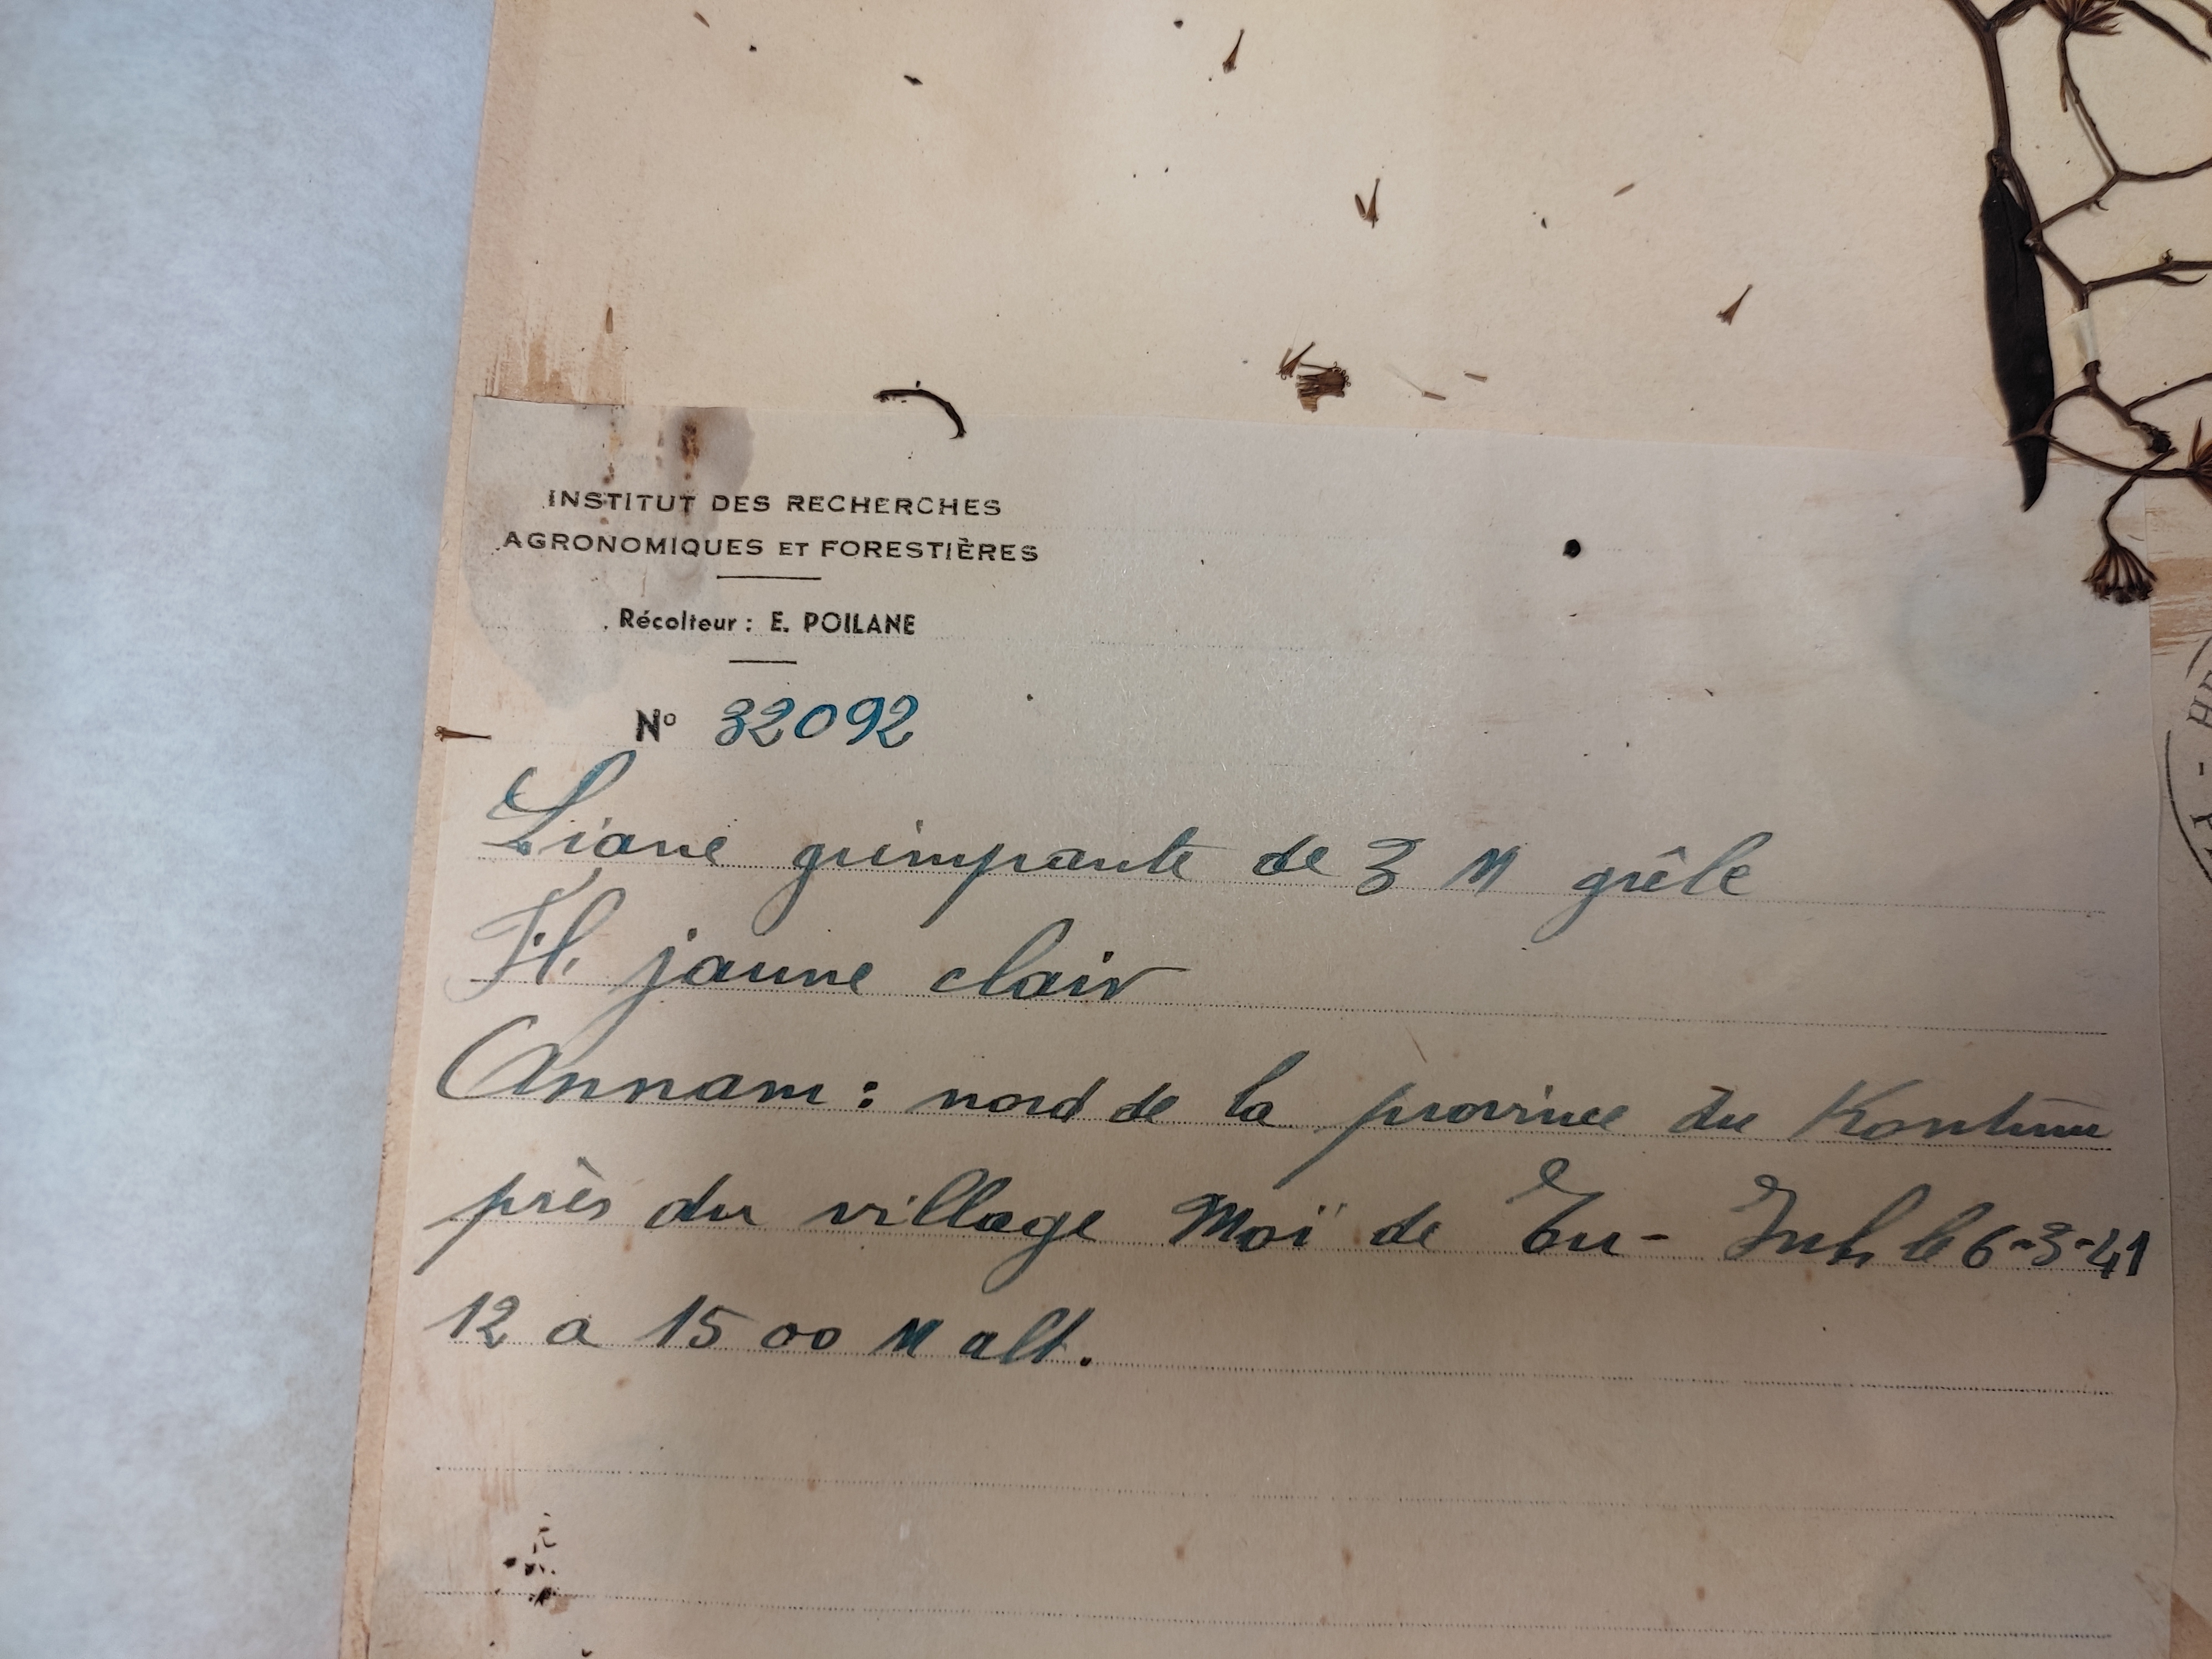 INSTITUT DES RECHERCHES
AGRONOMIQUES ET FORESTIÈRES
Récolteur : E. POILANE
N° 32092
Liane grimpante de 3 M grêle
Fl. jaune clair
Annam : nord de la province du Kontum
près du village Moï de le 6-3-41
12 a 15 00 M alt.